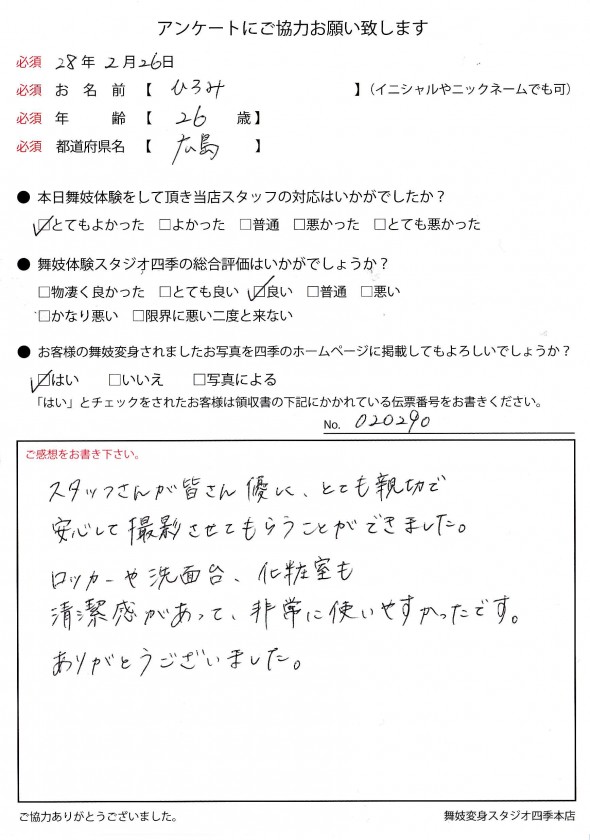 アンケートにご協力お願い致します
必須 28年2月26日
必須 お名前【 ひろみ 】（イニシャルやニックネームでも可）
必須 年齢【 26 歳】
必須 都道府県名【 広島 】
● 本日舞妓体験をして頂き当店スタッフの対応はいかがでしたか？
☑とてもよかった □よかった □普通 □悪かった □とても悪かった
● 舞妓体験スタジオ四季の総合評価はいかがでしょうか？
□物凄く良かった □とても良い ☑良い □普通 □悪い
□かなり悪い □限界に悪い二度と来ない
● お客様の舞妓変身されましたお写真を四季のホームページに掲載してもよろしいでしょうか？
☑はい □いいえ □写真による
「はい」とチェックをされたお客様は領収書の下記にかかれている伝票番号をお書きください。
No. 020290
ご感想をお書き下さい。
スタッフさんが皆さん優しく、とても親切で
安心して撮影させてもらうことができました。
ロッカーや洗面台、化粧室も
清潔感があって、非常に使いやすかったです。
ありがとうございました。
ご協力ありがとうございました。
舞妓変身スタジオ四季本店